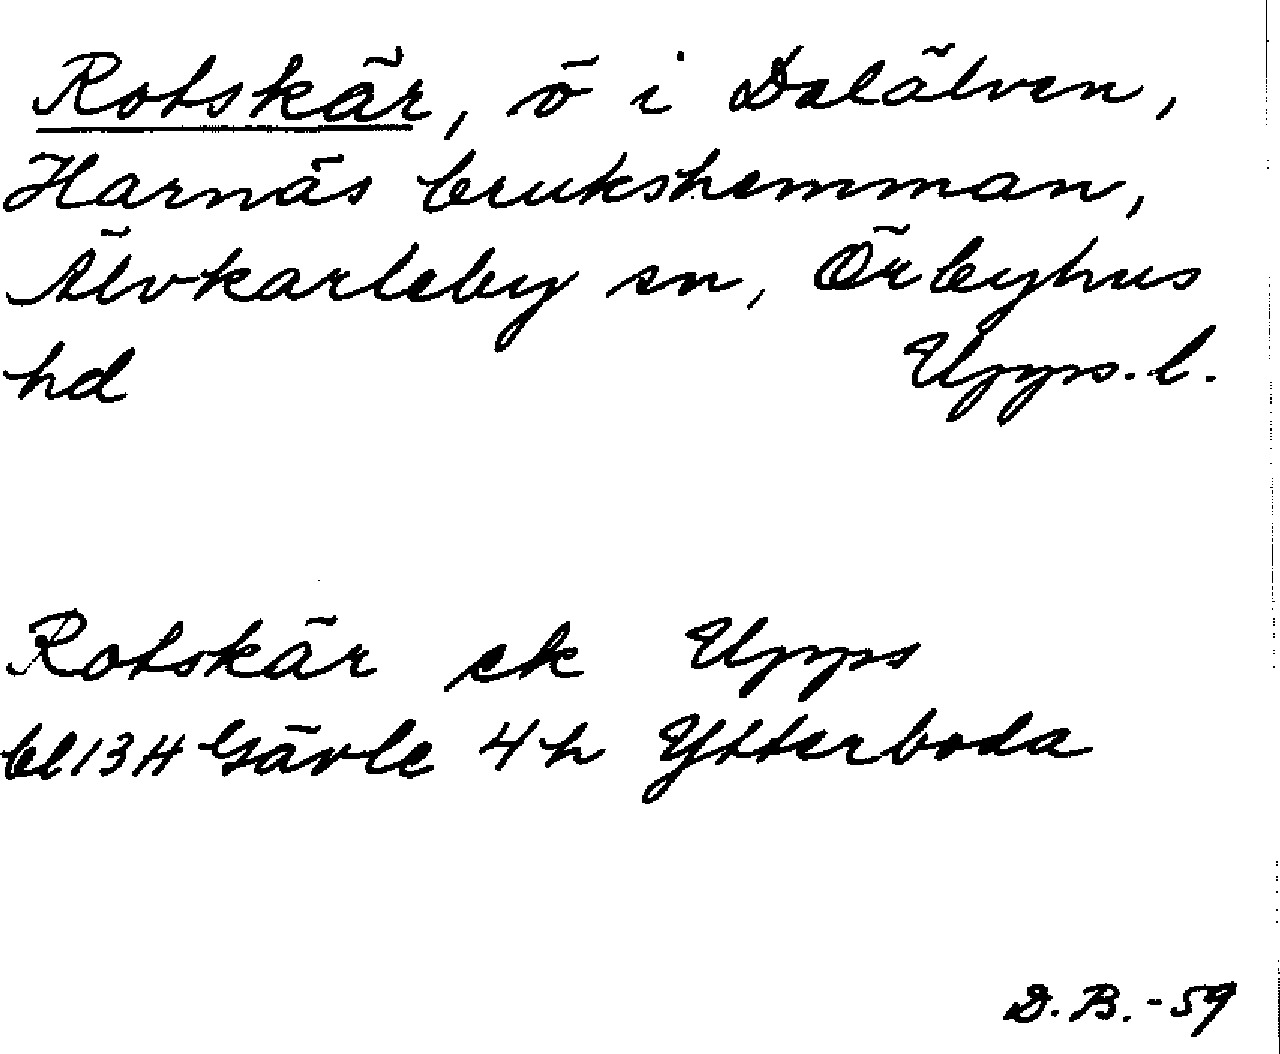 Rotskär, ö i Dalälven,
Harnäs brukshemman,
Älvkarleby sn, Örbyhus
hd Upps. l.
Rotskär ek Upps
bl 13 H Gävle 4 h Ytterboda
D.B. -59